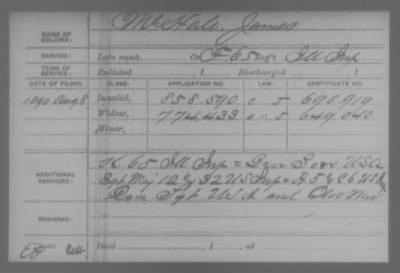 NAME OF SOLDIER: McHale, James
SERVICE: Late rank, Co. F, 65 Reg't Ill Inf
TERM OF SERVICE: Enlisted , 1 Discharged , 1
DATE OF FILING. CLASS. APPLICATION NO. LAW. CERTIFICATE NO.
1890 Aug 8 Invalid, 858.590 698.919
Widow, 774.433 649.040
Minor,
K. 65 Ill Inf = Gen Serv USA
ADDITIONAL SERVICES: Sgt Maj 12 & 32 US Inf = A. 5 & C 6 US
Com Sgt US A and
REMARKS:
Died , 1 , at